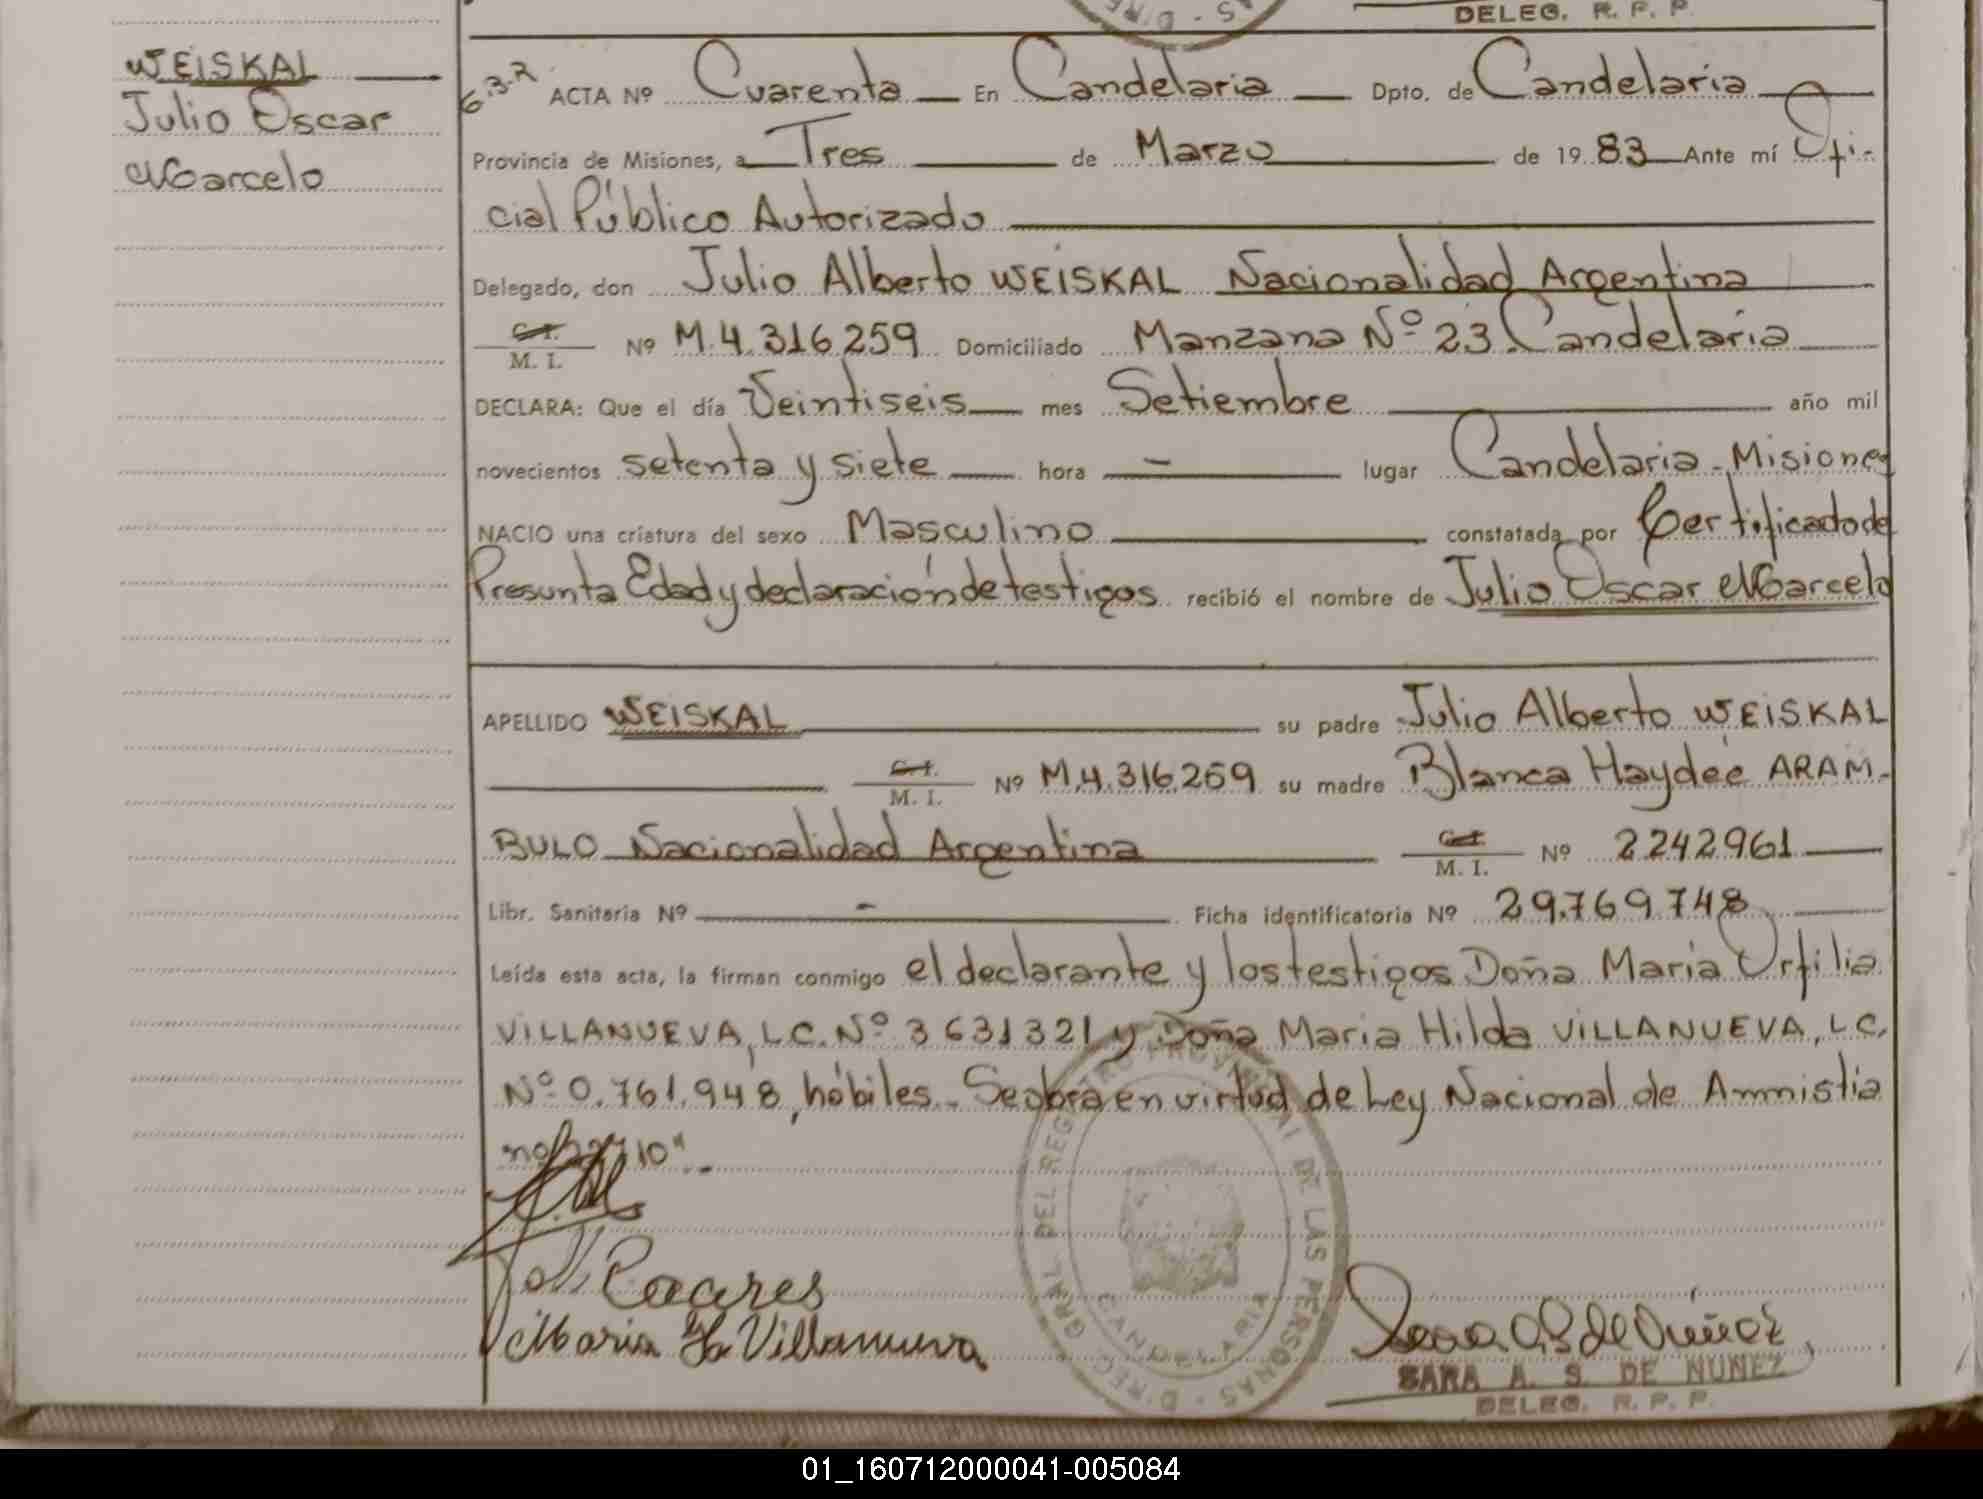 DELEG. R. P. P.
WEISKAL
Julio Oscar
Marcelo
ACTA Nº Cuarenta En Candelaria Dpto. de Candelaria
Provincia de Misiones, a Tres de Marzo de 1983 Ante mí Ofi-
cial Público Autorizado
Delegado, don Julio Alberto WEISKAL Nacionalidad Argentina
C.I. M. I. Nº M.4.316.259 Domiciliado Manzana Nº 23 Candelaria
DECLARA: Que el día Veintiseis mes Setiembre año mil
novecientos setenta y siete hora - lugar Candelaria - Misiones
NACIO una criatura del sexo Masculino constatada por Certificado de
Presunta Edad y declaración de testigos recibió el nombre de Julio Oscar Marcelo
APELLIDO WEISKAL su padre Julio Alberto WEISKAL
C.I. M. I. Nº M.4.316.259 su madre Blanca Haydée ARAM-
BULO Nacionalidad Argentina C.I. M. I. Nº 2242961
Libr. Sanitaria Nº - Ficha identificatoria Nº 29.769.748
Leída esta acta, la firman conmigo el declarante y los testigos Doña Maria Orfilia
VILLANUEVA, L.C. Nº 3631321 y Doña Maria Hilda VILLANUEVA, L.C.
Nº 0.761.948, hábiles. Se obra en virtud de Ley Nacional de Amnistia
Maria H. Villanueva
DIREC. GRAL DEL REGISTRO PROVINCIAL DE LAS PERSONAS
CANDELARIA
SARA A. S. DE NUÑEZ
DELEG. R. P. P.
01_160712000041-005084